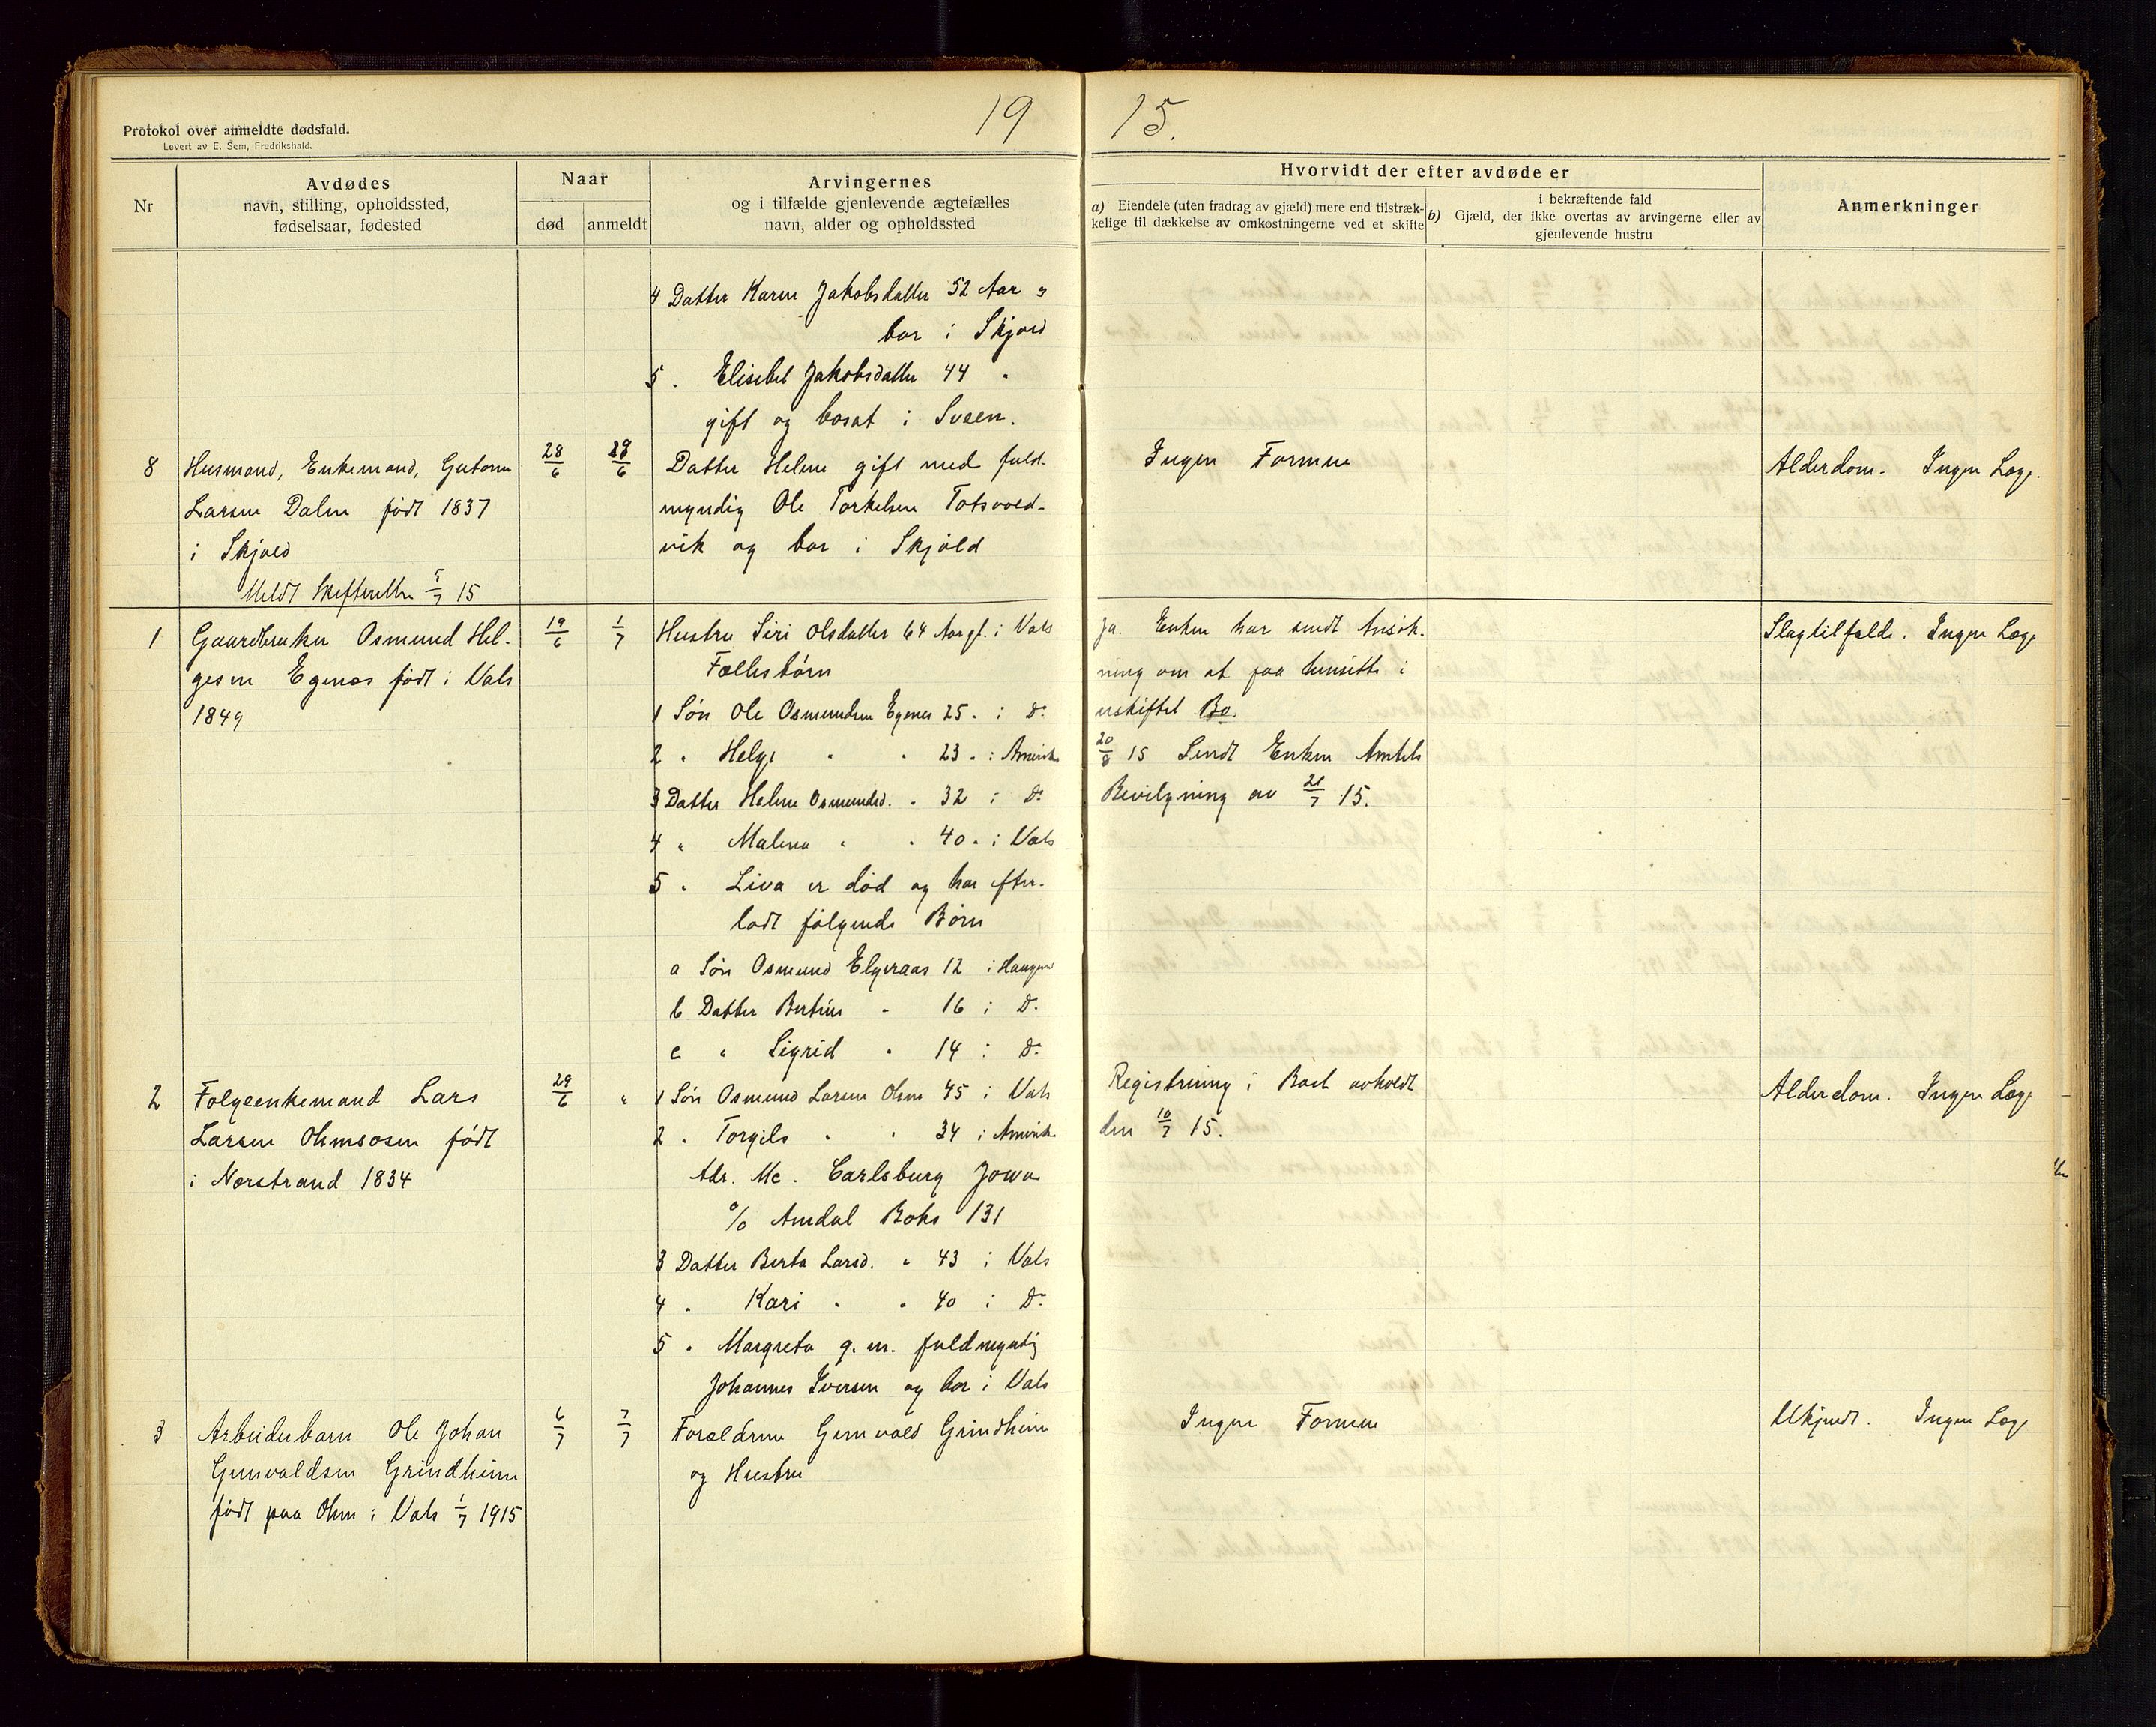 19 15.
Protokol over anmeldte dødsfald.
Levert av E. Sem, Fredrikshald.
Nr
Avdødes
navn, stilling, opholdssted,
fødselsaar, fødested
Naar
død
anmeldt
Arvingernes
og i tilfælde gjenlevende ægtefælles
navn, alder og opholdssted
Hvorvidt der efter avdøde er
a) Eiendele (uten fradrag av gjæld) mere end tilstræk-
kelige til dækkelse av omkostningerne ved et skifte
i bekræftende fald
b) Gjæld, der ikke overtas av arvingerne eller av
gjenlevende hustru
Anmerkninger
4 Datter Karen Jakobsdatter 52 Aar og
bor i Skjold
5 " Elisebet Jakobsdatter 44 "
gift og bosat i Sveen.
8 Husmand, Enkemand, Gutorm
Larsen Dalen født 1837
i Skjold
Meldt Skifteretten 5/7 15
28/6
29/6
Datter Helene gift med fuld-
myndig Ole Torkelsen Totsvold-
vik og bor i Skjold
Ingen Formue
Alderdom. Ingen Læge.
1 Gaardbruker Osmund Hel-
gesen Egenes født i Vats
1849
19/6
1/7
Hustru Siri Olsdatter 64 Aar gl. i Vats
Fællesbørn
1 Søn Ole Osmundsen Egenes 25 " i Do
2 " Helge " " 23 " i Amerika
3 Datter Helene Osmundsd. " 32 i Do
4 " Malena " " 40 " i Vats
5 " Liva er død og har efter-
ladt følgende Børn
a Søn Osmund Elgeraas 12 i Haugesund
b Datter Bertine " 16 i Do
c " Sigrid " 14 i Do
Ja. Enken har sendt Ansøk-
ning om at faa hensitte i
uskiftet Bo.
20/8 15 Sendt Enken Amtets
Bevilgning av 21/7 15.
Slagtilfælde. Ingen Læge
2 Folgeenkemand Lars
Larsen Ohmsosen født
i Nerstrand 1834
29/6
"
1 Søn Osmund Larsen Ohm 45 i Vats
2 " Torgils " " 34 i Amerika
Adr. Mc. Carlsburg Jowa
c/o Amdal Boks 131
3 Datter Berta Larsd. " 43 i Vats
4 " Kari " " 40 i Do
5 " Margreta g. m. fuldmyndig
Johannes Iversen og bor i Vats
Registrering i Boet avholdt
den 10/7 15.
Alderdom. Ingen Læge
3 Arbeiderbarn Ole Johan
Gunvaldsen Grindheim
født paa Ohm i Vats 1/7 1915
6/7
7/7
Forældrene Gunvald Grindheim
og Hustru
Ingen Formue
Ukjendt. Ingen Læge